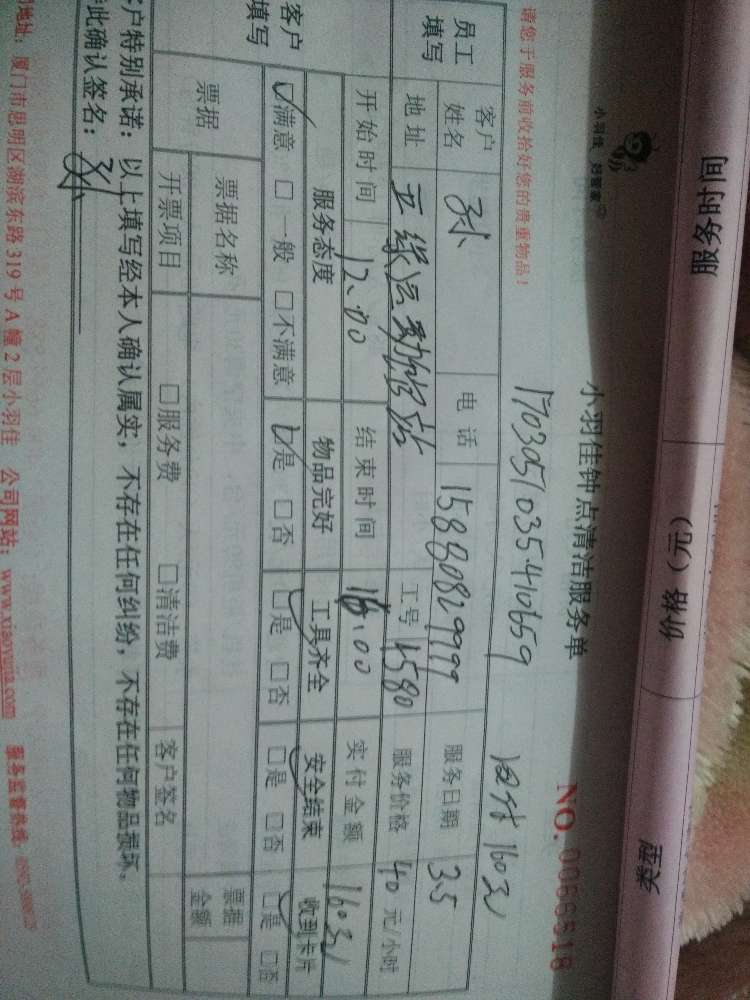 服务时间 价格（元） 类型
小羽佳 好管家
小羽佳钟点清洁服务单
NO. 0066518
请您于服务前收拾好您的贵重物品！
1703051035410659
160元
员工填写
客户姓名 孙 电话 15880829999 服务日期 3.5
地址 五缘运动馆站 工号 1580 服务价格 40 元/小时
开始时间 12.00 结束时间 16.00 实付金额 160元
客户填写
服务态度 物品完好 工具齐全 安全结束 收到卡片
☑满意 □一般 □不满意 ☑是 □否 ☑是 □否 □是 □否 ☑是 □否
票据 票据名称 票据金额
开票项目 □服务费 □清洁费 客户签名
客户特别承诺：以上填写经本人确认属实，不存在任何纠纷，不存在任何物品损坏。
此确认签名：孙
地址：厦门市思明区湖滨东路319号A幢2层小羽佳 公司网站：www.xiaoyujia.com 服务监督热线：